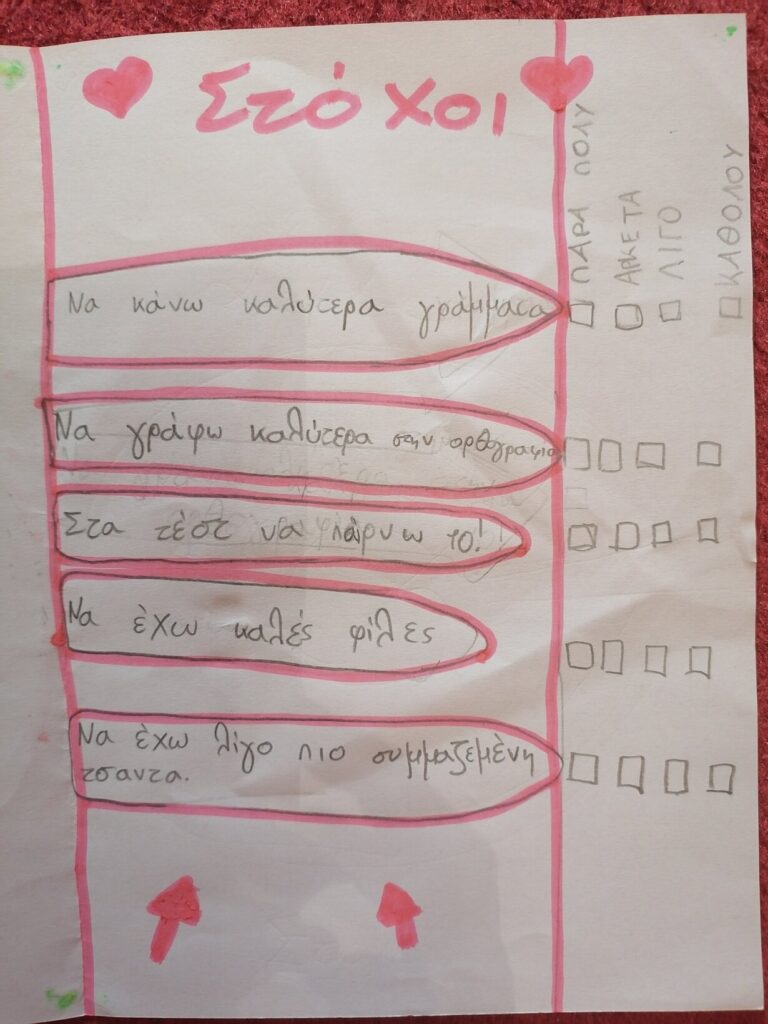 Στόχοι
ΠΑΡΑ ΠΟΛΥ
ΑΡΚΕΤΑ
ΛΙΓΟ
ΚΑΘΟΛΟΥ
Να κάνω καλύτερα γράμματα
Να γράφω καλύτερα στην ορθογραφία
Στα τέστ να παίρνω 10!
Να έχω καλές φίλες
Να έχω λίγο πιο συμμαζεμένη
τσαντα.